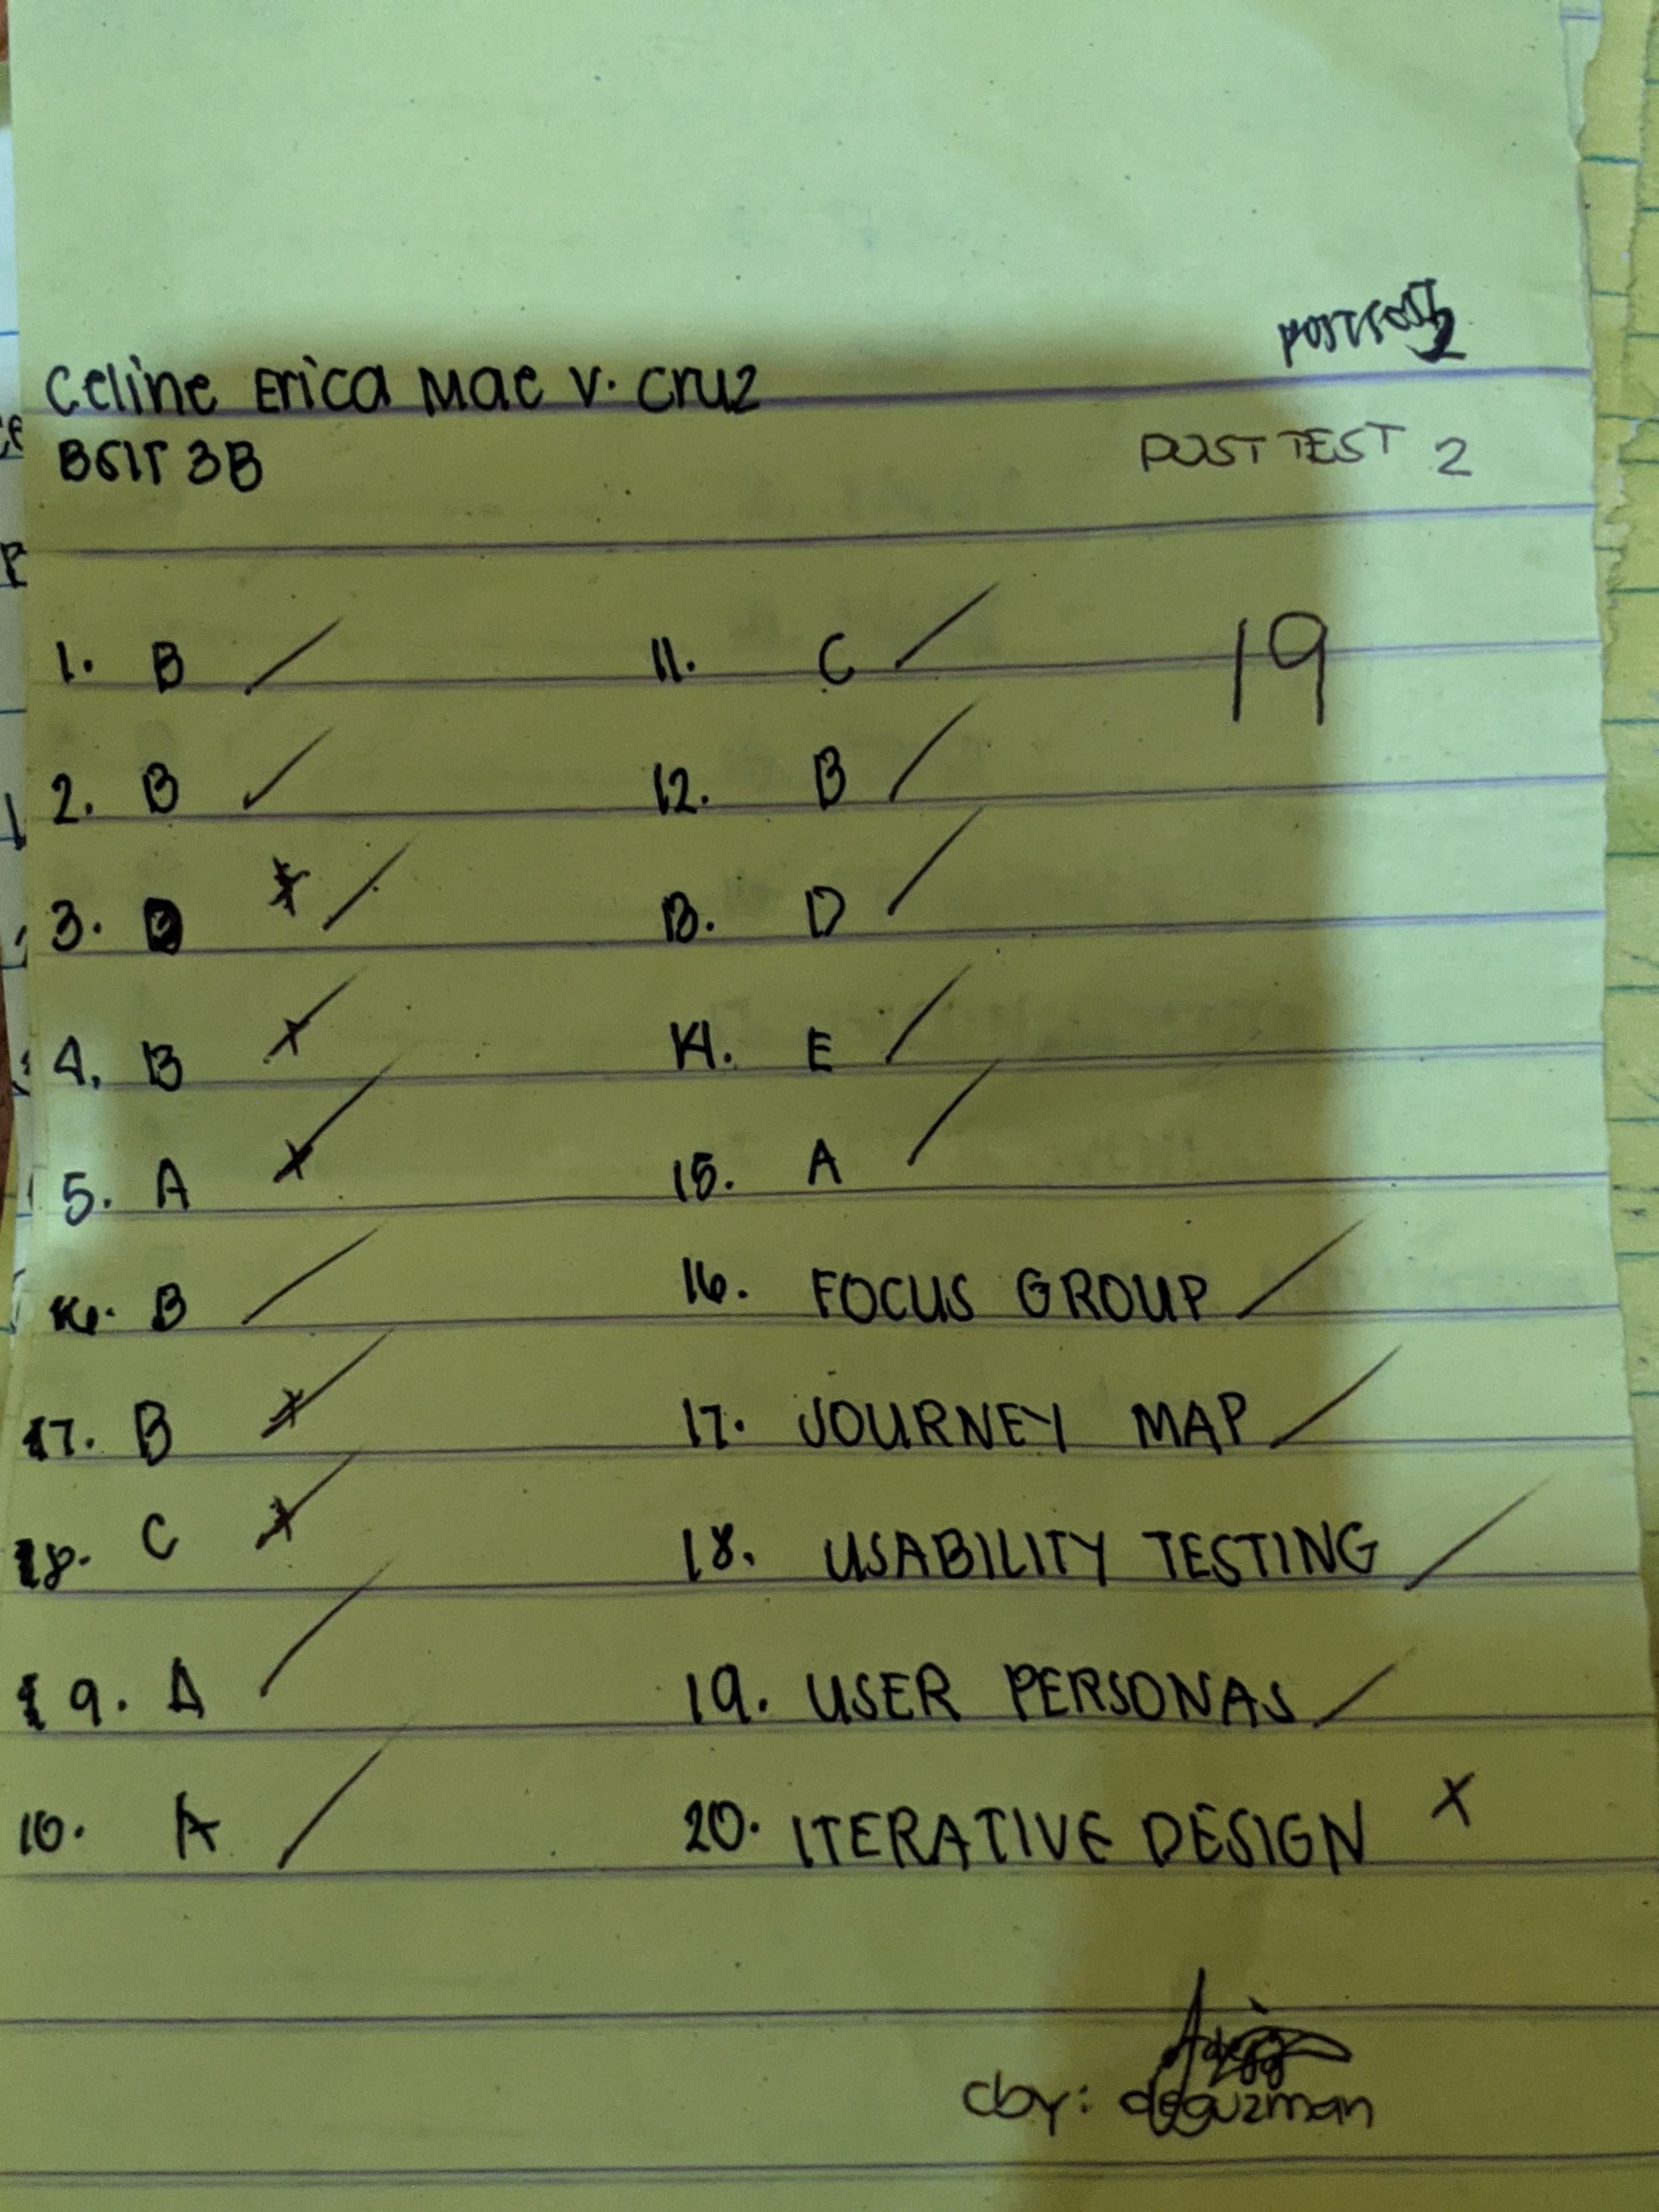 POSTTEST 2
Celine Erica Mae V. Cruz
BSIT 3B
POST TEST 2
19
1. B
2. B
3. D
4. B
5. A
6. B
7. B
8. C
9. A
10. A
11. C
12. B
13. D
14. E
15. A
16. FOCUS GROUP
17. JOURNEY MAP
18. USABILITY TESTING
19. USER PERSONAS
20. ITERATIVE DESIGN
cby: deguzman